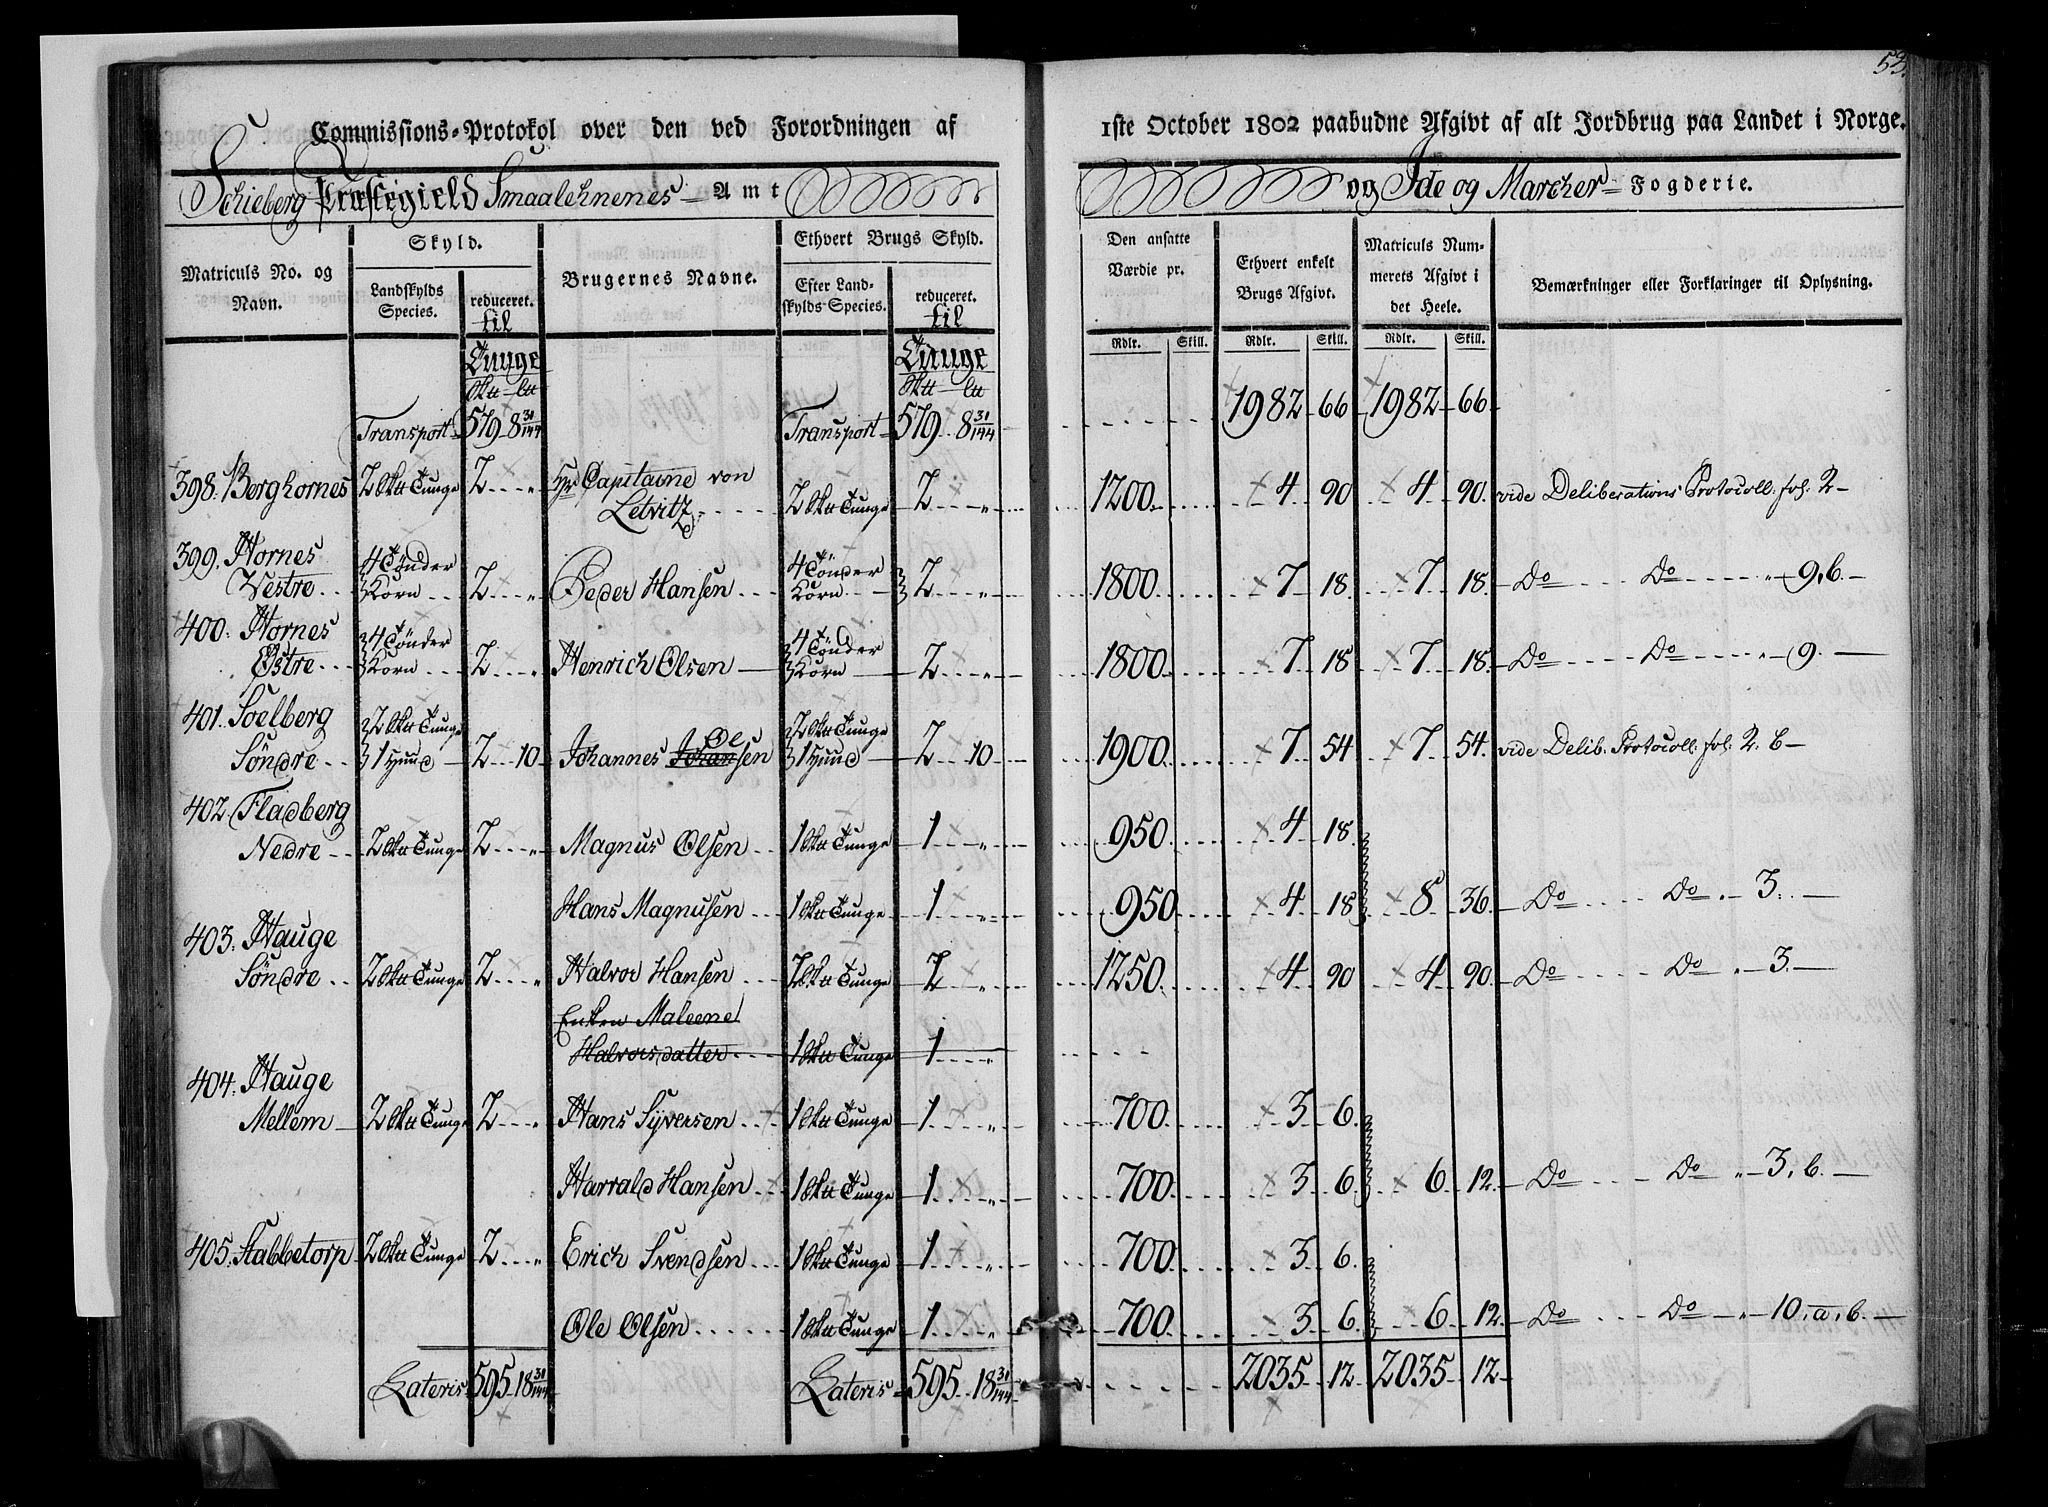 53.
Commissions-Protokol over den ved Forordningen af 1ste October 1802 paabudne Afgivt af alt Jordbrug paa Landet i Norge.
Schieberg Præstegield Smaalehnenes Amt og Ide og Marcher Fogderie.
Matriculs No. og Navn. | Skyld. | Brugernes Navne. | Ethvert Brugs Skyld. | Den ansatte Værdie pr. | Ethvert enkelt Brugs Afgivt. | Matriculs Nummerets Afgivt i det Heele. | Bemærkninger eller Forklaringer til Oplysning.
Landskylds Species. | reduceret. til | Efter Landskylds Species. | reduceret. til
Tunge | Tunge | Rdlr. | Skill. | Rdlr. | Skill. | Rdlr. | Skill.
Transport 579 8 31/144 | Transport 579 8 31/144 | 1982 66 | 1982 66
398. Berghornes | 2 Tunge | 2 | Hr Capitaine von
Letvitz | 2 Tunge | 2 | 1200 | 4 90 | 4 90 | vide Deliberations Protocoll. fol. 2
399. Hornes | 4 Tønder | 4 Tønder
Vestre | Korn | 2 | Peder Hansen | Korn | 2 | 1800 | 7 18 | 7 18 | Do Do 9, b.
400. Hornes | 4 Tønder | 4 Tønder
Østre | Korn | 2 | Henrich Olsen | Korn | 2 | 1800 | 7 18 | 7 18 | Do Do 9.
401. Soelberg | 2 Tunge | Ole | 2 Tunge
Søndre | 1 Huud | 2 10 | Johannes Johansen | 1 Huud | 2 10 | 1900 | 7 54 | 7 54 | vide Delib. Protocoll. fol. 2. b
402. Fladberg
Nedre | 2 Tunge | 2 | Magnus Olsen | 1 Tunge | 1 | 950 | 4 18
Hans Magnusen | 1 Tunge | 1 | 950 | 4 18 | 8 36 | Do Do 3.
403. Hauge
Søndre | 2 Tunge | 2 | Halvor Hansen | 2 Tunge | 2 | 1250 | 4 90 | 4 90 | Do Do 3.
Enken Maleene
Halvorsdatter | 1 Tunge | 1
404. Hauge
Mellem | 2 Tunge | 2 | Hans Syversen | 1 Tunge | 1 | 700 | 3 6
Harrald Hansen | 1 Tunge | 1 | 700 | 3 6 | 6 12 | Do Do 3, b.
405. Stabbetorp | 2 Tunge | 2 | Erich Svendsen | 1 Tunge | 1 | 700 | 3 6
Ole Olsen | 1 Tunge | 1 | 700 | 3 6 | 6 12 | Do Do 10, a, b.
Lateris 595 18 31/144 | Lateris 595 18 31/144 | 2035 12 | 2035 12